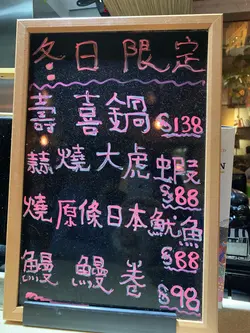 冬日限定
壽喜鍋 $138
蒜燒大虎蝦
$88
燒原條日本魷魚
$88
鰻鰻卷
$98